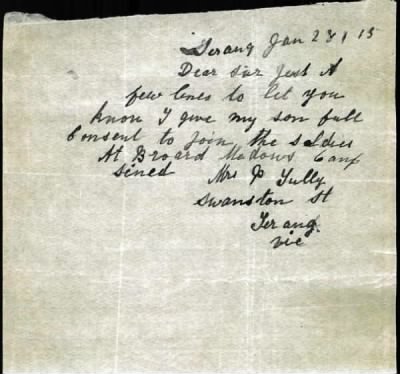 Terang Jan 23 / 15
Dear Sir Just A
few lines to let you
know I give my son full
Consent to join the soldies
At Broard Medows Camp
sined Mrs P Tully
Swanston St
Terang
Vic